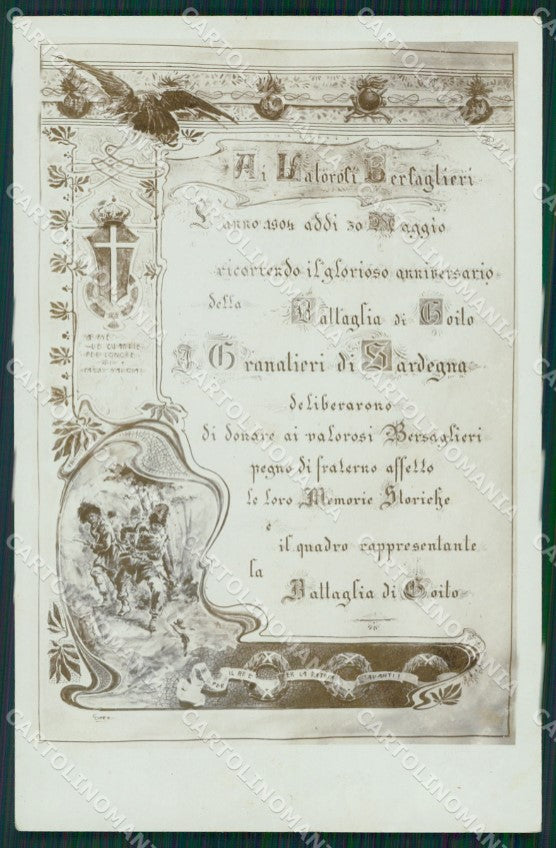 Ai Valorosi Bersaglieri
L'anno 1904 addì 30 Maggio
ricorrendo il glorioso anniversario
della Battaglia di Goito
I Granatieri di Sardegna
deliberarono
di donare ai valorosi Bersaglieri
pegno di fraterno affetto
le loro Memorie Storiche
e
il quadro rappresentante
la
Battaglia di Goito
A ME
LE GUARDIE
PER L'ONORE
DI
CASA SAVOIA
PER IL RE E PER LA PATRIA AVANTI!
CARTOLINOMANIA